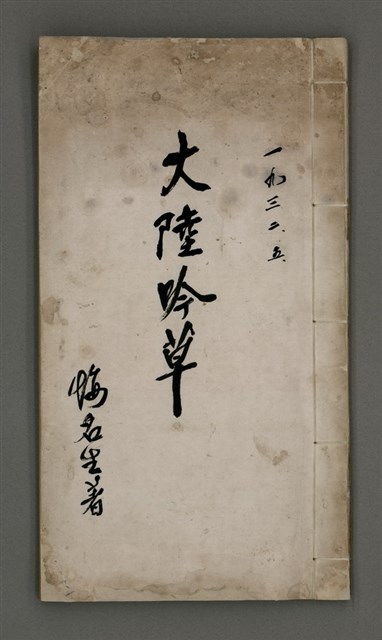 一九三二、五、
大陸吟草
悔名生著